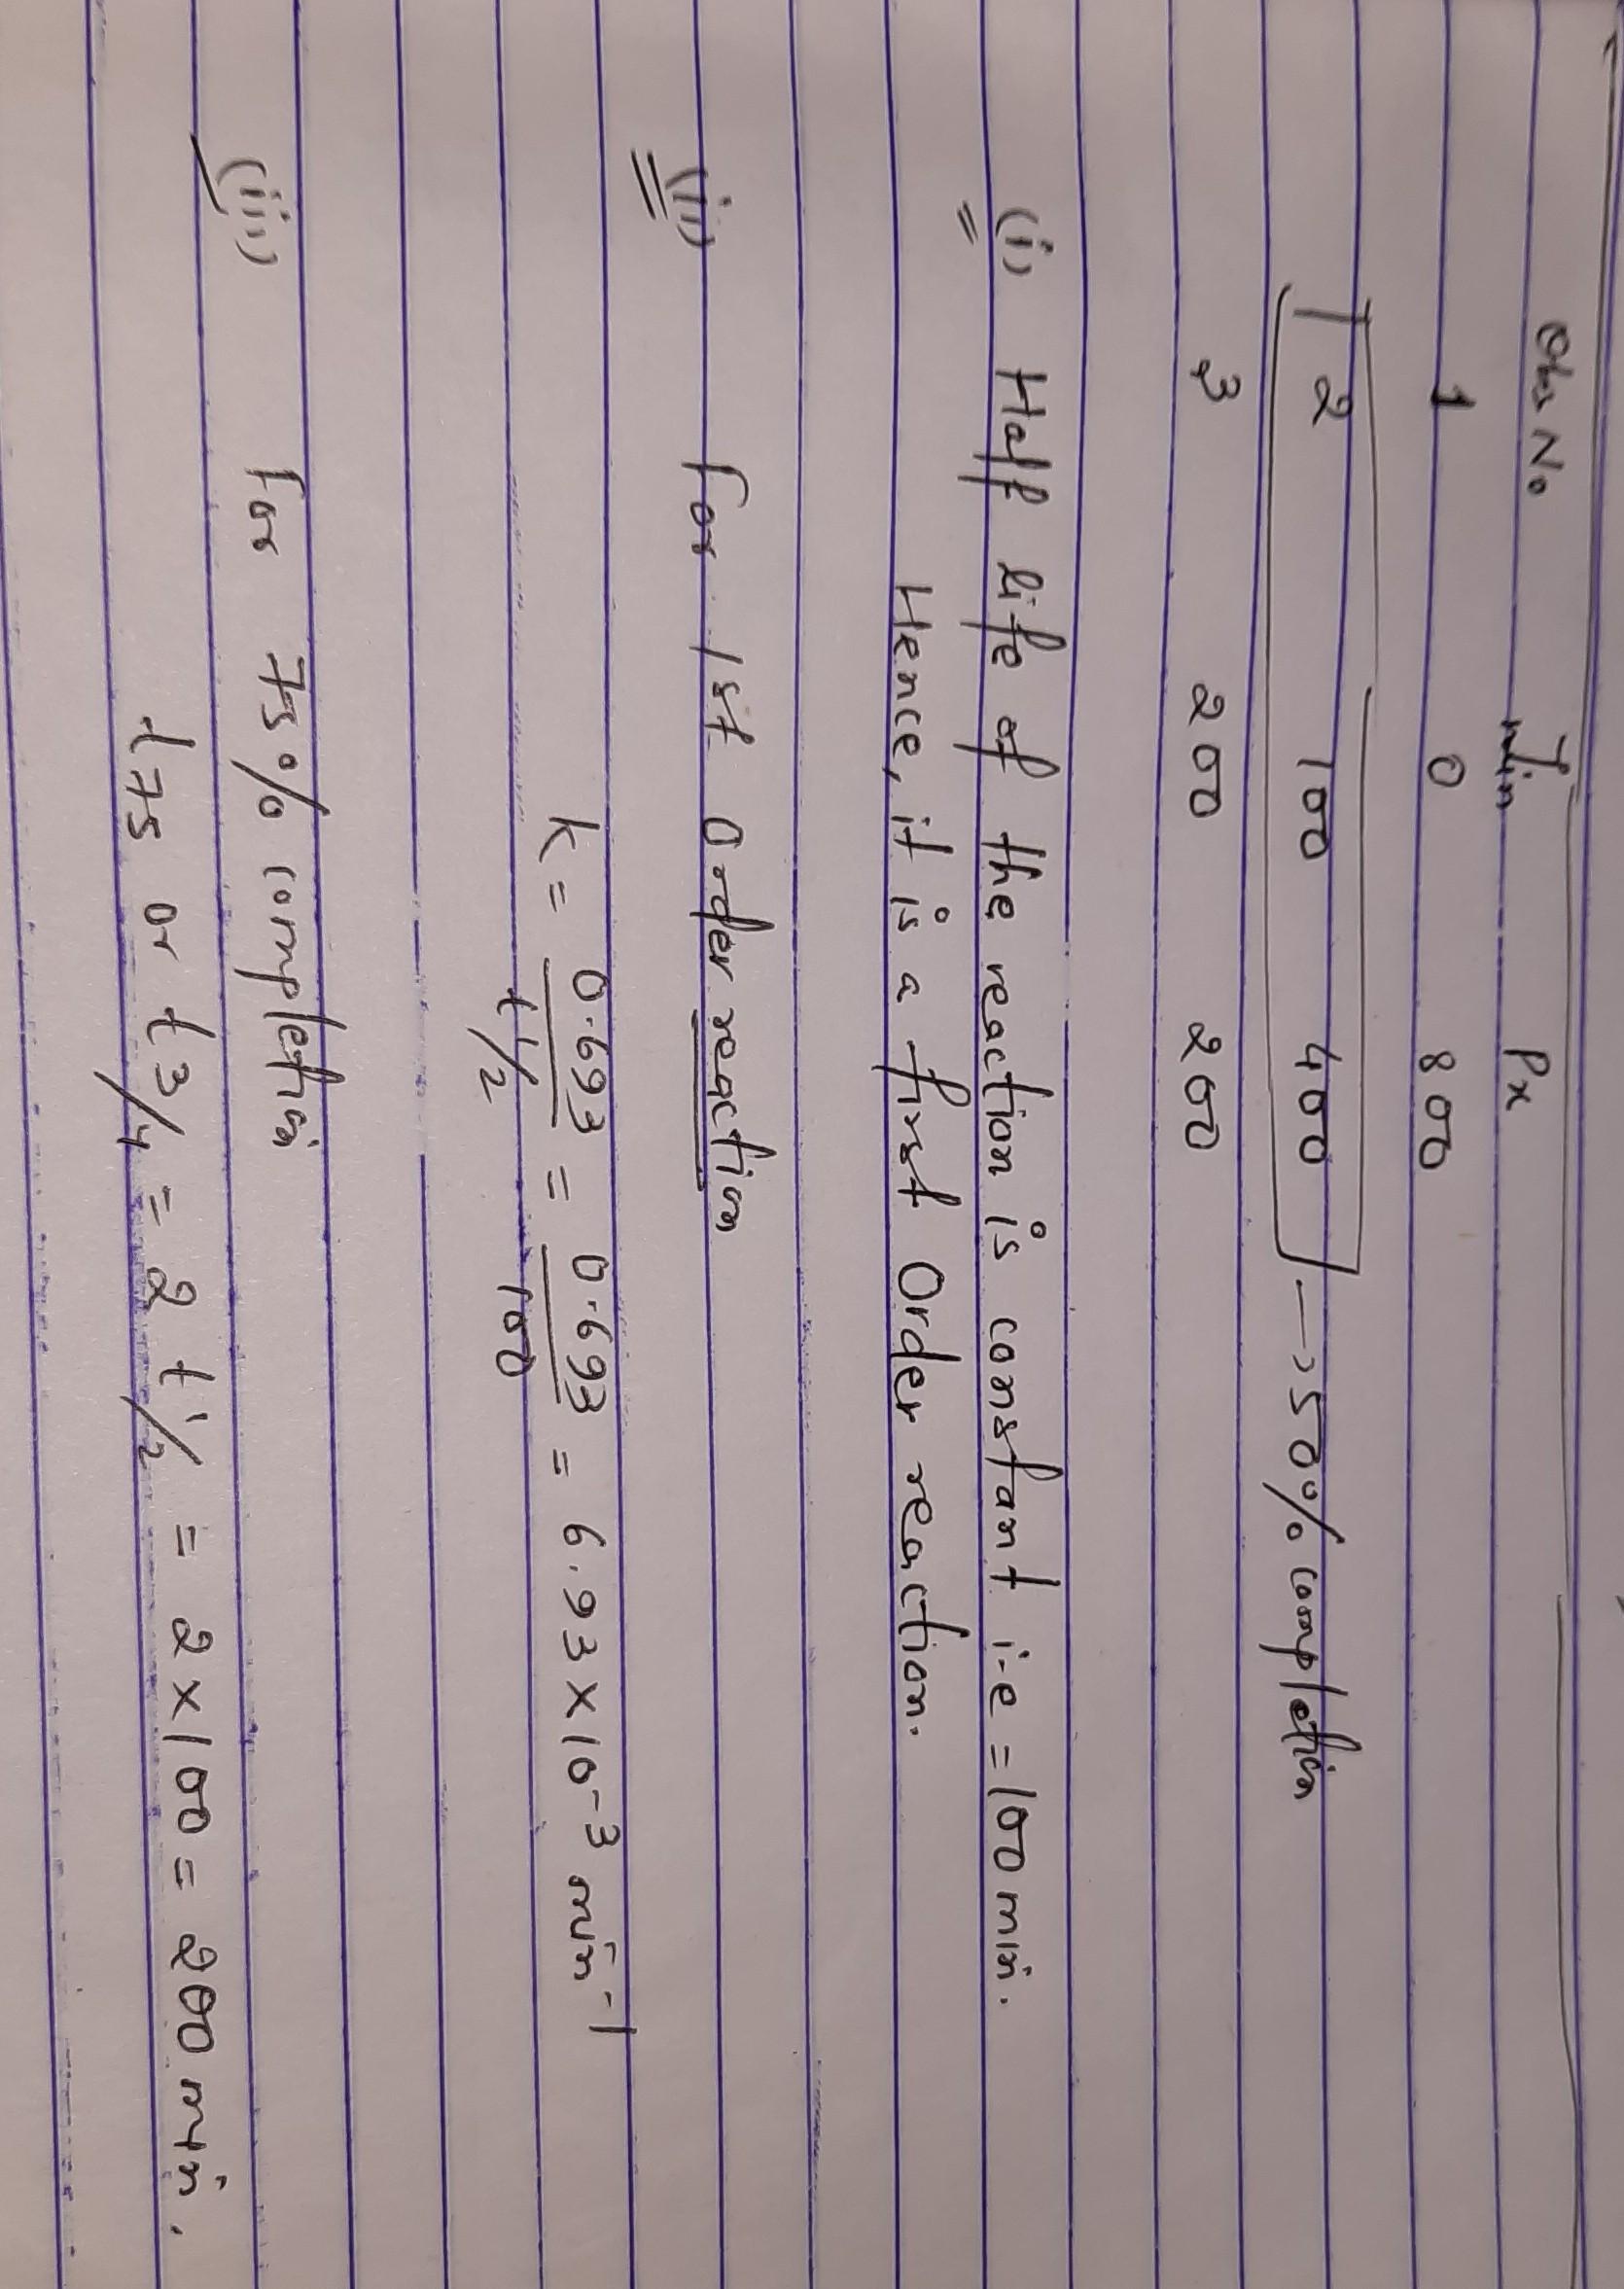 Obs No Time Px
min
1 0 800
2 100 400 → 50% completion
3 200 200
(i) Half life of the reaction is constant i.e = 100 min.
Hence, it is a first Order reaction.
(ii) For 1st Order reaction
k = 0.693/t1/2 = 0.693/100 = 6.93 × 10-3 min-1
(iii) For 75% completion
t75 or t3/4 = 2 t1/2 = 2 × 100 = 200 min.